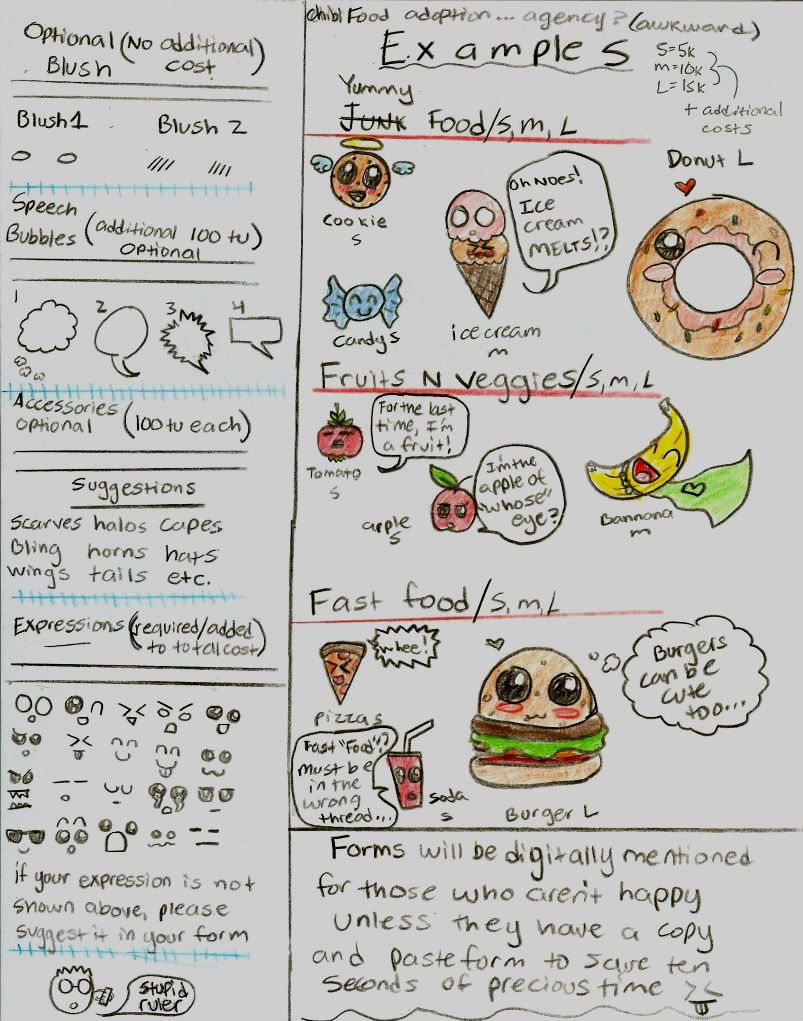 Optional (No additional)
Blush cost
Blush 1 Blush 2
Speech
Bubbles (additional 100 tu)
optional
1 2 3 4
Accessories
optional (100 tu each)
Suggestions
Scarves halos capes
Bling horns hats
wings tails etc.
Expressions (required/added
to total cost)
if your expression is not
shown above, please
suggest it in your form
stupid
ruler
chibi Food adoption... agency? (awkward)
Examples
S=5k
m=10k
L=15k
+ additional
costs
Yummy
Junk Food/S, m, L
Cookie
S
Oh Noes!
Ice
cream
MELTS!?
ice cream
m
Donut L
Candy S
Fruits N Veggies/S, m, L
For the last
time, I'm
a fruit!
Tomato
S
I'm the
apple of
"whose"
eye?
apple
S
Bannana
m
Fast food/S, m, L
whee!
pizza S
Burgers
can be
cute
too...
Fast "Food"?
Must be
in the
wrong
thread...
soda
S
Burger L
Forms will be digitally mentioned
for those who aren't happy
unless they have a copy
and paste form to save ten
seconds of precious time